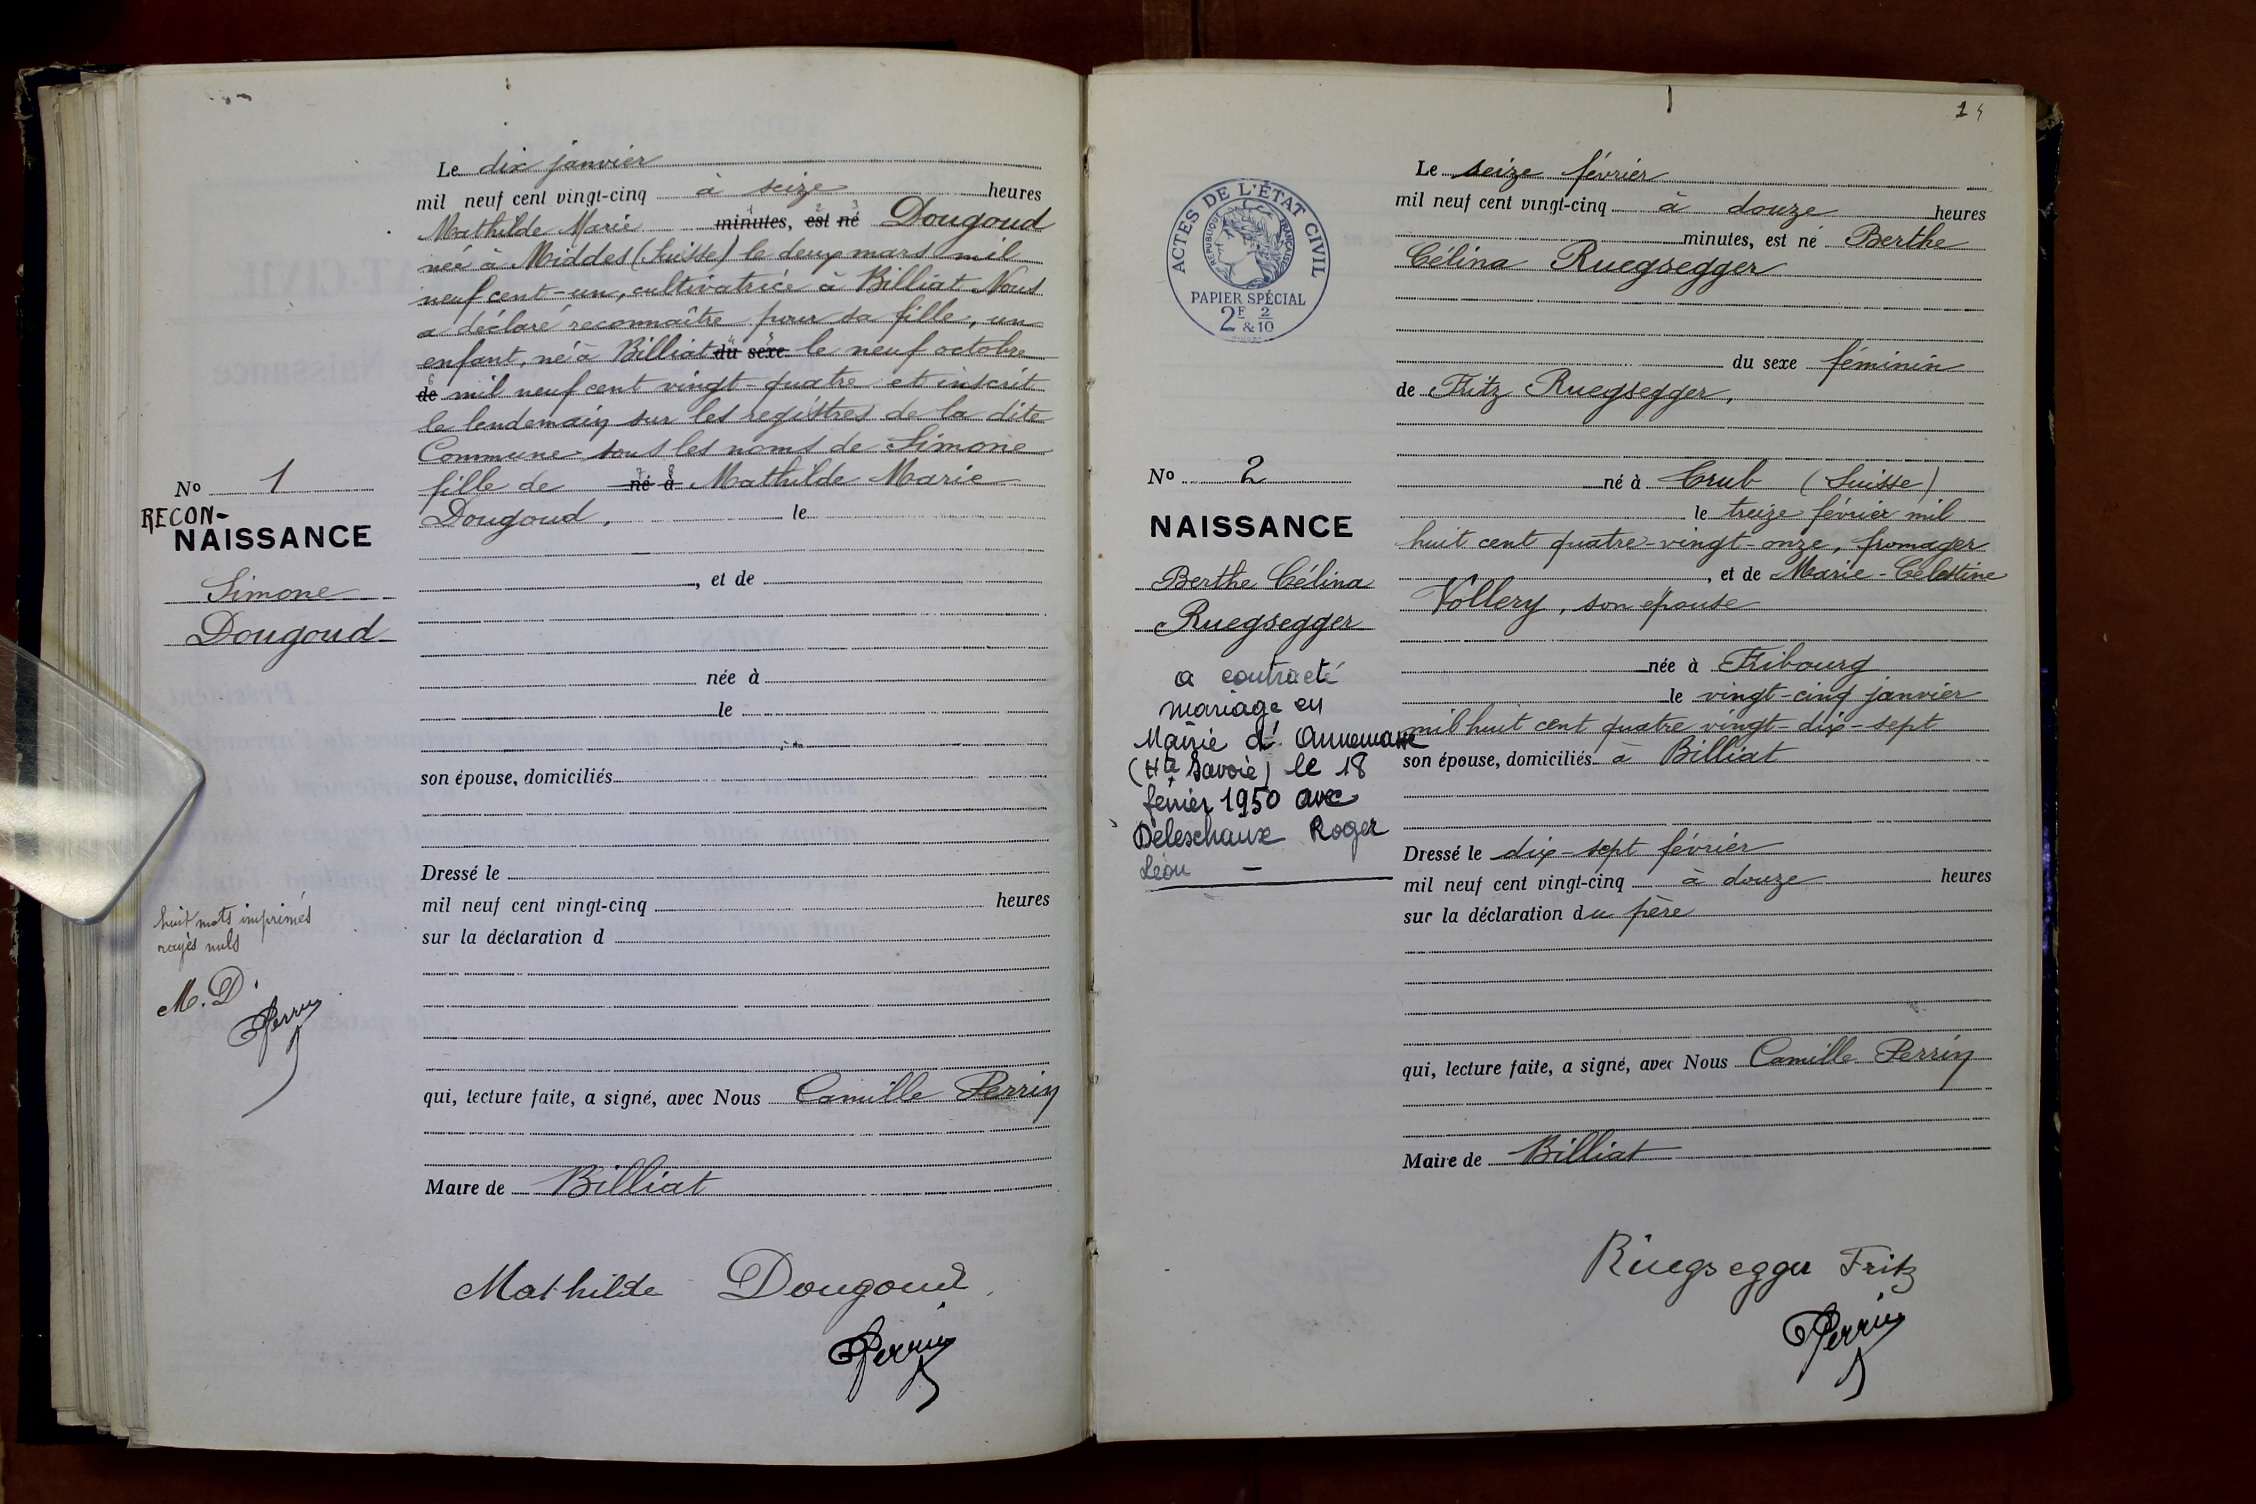 Le dix janvier
mil neuf cent vingt-cinq à seize heures
Mathilde Marie minutes, est né Dougoud
née à Middes (Suisse) le deux mars mil
neuf cent-un, cultivatrice à Billiat Nous
a déclaré reconnaître pour sa fille, un
enfant, né à Billiat du sexe le neuf octobre
de mil neuf cent vingt-quatre et inscrit
le lendemain sur les registres de la dite
Commune sous les noms de Simone
fille de né à Mathilde Marie
Dougoud, le
No 1
RECON-
NAISSANCE
Simone
Dougoud
, et de
née à
le
son épouse, domiciliés
Dressé le
mil neuf cent vingt-cinq heures
sur la déclaration d
huit mots imprimés
rayés nuls
M. D.
Perrin
qui, lecture faite, a signé, avec Nous Camille Perrin
Maire de Billiat
Mathilde Dougoud
Perrin
Le seize février
mil neuf cent vingt-cinq à douze heures
minutes, est né Berthe
Célina Ruegsegger
du sexe féminin
de Fritz Ruegsegger,
né à Trub (Suisse)
le treize février mil
huit cent quatre-vingt-onze, fromager
, et de Marie-Célestine
Vollery, son épouse
née à Fribourg
le vingt-cinq janvier
mil huit cent quatre vingt-dix-sept
son épouse, domiciliés à Billiat
Dressé le dix-sept février
mil neuf cent vingt-cinq à douze heures
sur la déclaration du père
qui, lecture faite, a signé, avec Nous Camille Perrin
Maire de Billiat
ACTES DE L'ÉTAT CIVIL
RÉPUBLIQUE FRANÇAISE
PAPIER SPÉCIAL
2F & 2/10
No 2
NAISSANCE
Berthe Célina
Ruegsegger
a contracté
mariage en
Mairie d'Annemasse
(Hte Savoie) le 18
février 1950 avec
Déleschaux Roger
Léon —
Ruegsegger Fritz
Perrin